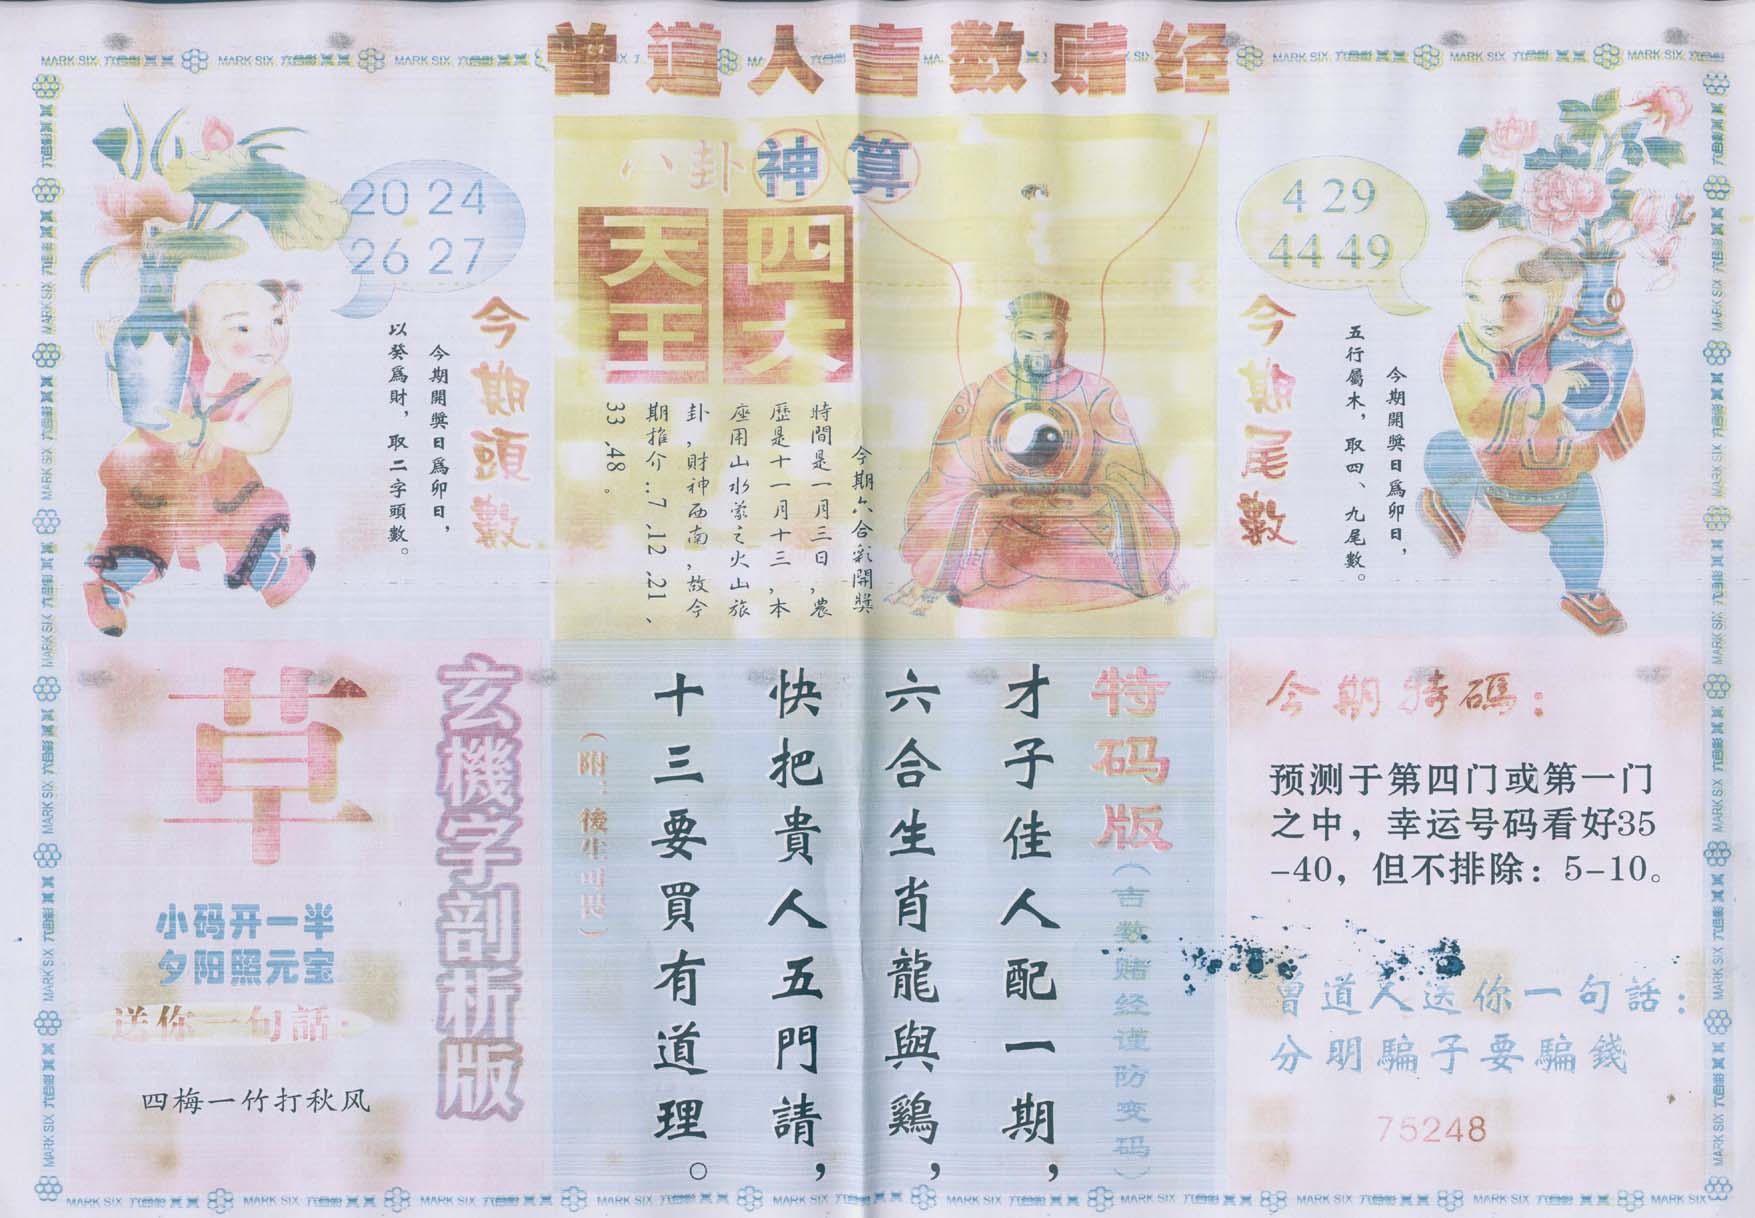 曾道人吉数赌经
20 24
26 27
今期頭數
今期開獎日爲卯日，
以癸爲財，取二字頭數。
八卦神算
四大
天王
今期六合彩開獎
時間是一月三日，農
歷是十一月十三，本
座用山水蒙之火山旅
卦，財神西南，故今
期推介：7、12、21、
33、48。
4 29
44 49
今期尾數
今期開獎日爲卯日，
五行屬木，取四、九尾數。
玄機字剖析版
草
小码开一半
夕阳照元宝
送你一句話：
四梅一竹打秋风
特码版
（吉数赌经谨防变码）
才子佳人配一期，
六合生肖龍與鷄，
快把貴人五門請，
十三要買有道理。
（附：後生可畏）
今期特碼：
预测于第四门或第一门
之中，幸运号码看好35
-40，但不排除：5-10。
曾道人送你一句話：
分明騙子要騙錢
75248
MARK SIX 六合彩